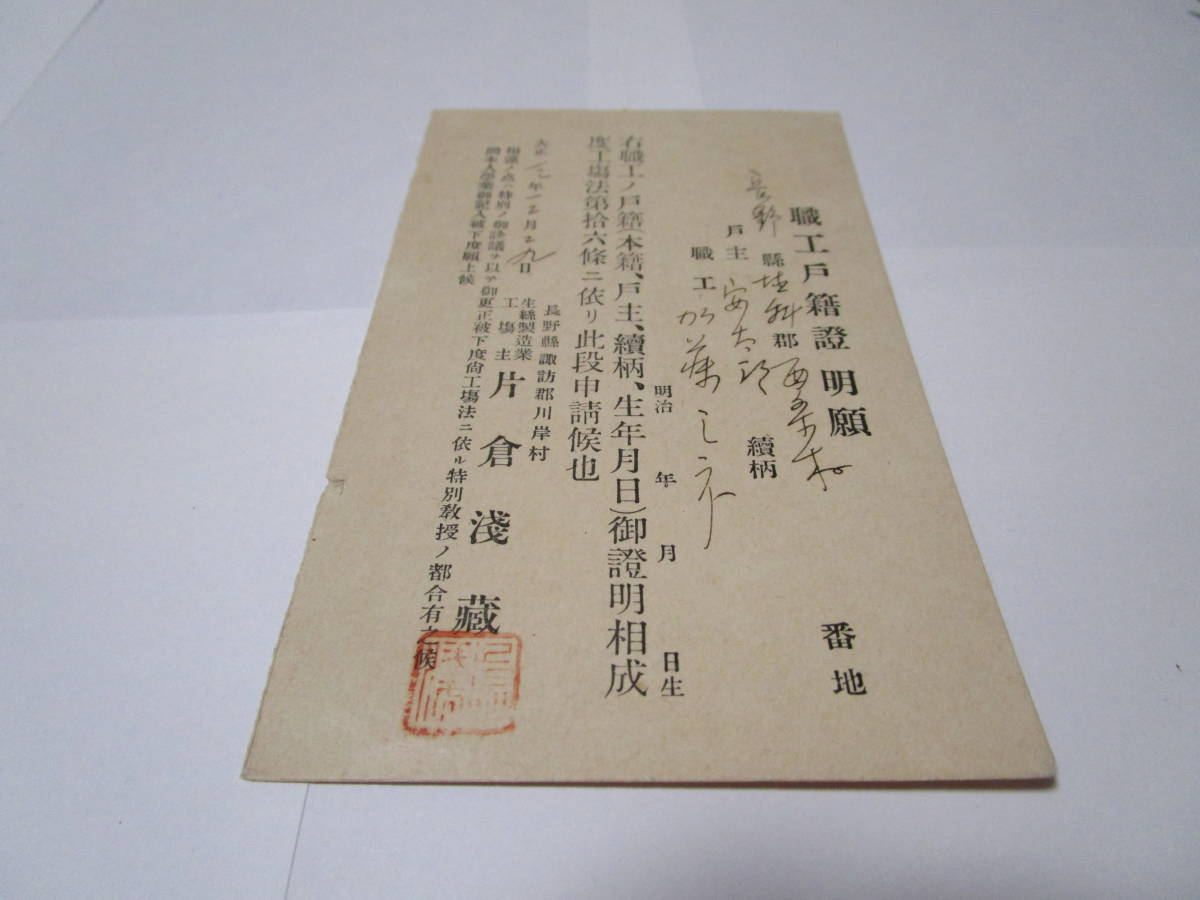 職工戶籍證明願
長野縣埴科郡西条村 番地
戶主 安太郎 續柄
職工 加藤
明治 年 月 日生
右職工ノ戶籍(本籍、戶主、續柄、生年月日)御證明相成
度工塲法第拾六條ニ依リ此段申請候也
大正 年 月 九日
長野縣諏訪郡川岸村
生絲製造業
工塲主 片倉淺藏
相違ノ点ハ特別ノ御詮議ヲ以テ御更正被下度尙工塲法ニ依ル特別敎授ノ都合有之候
間本人學業御記入被下度願上候